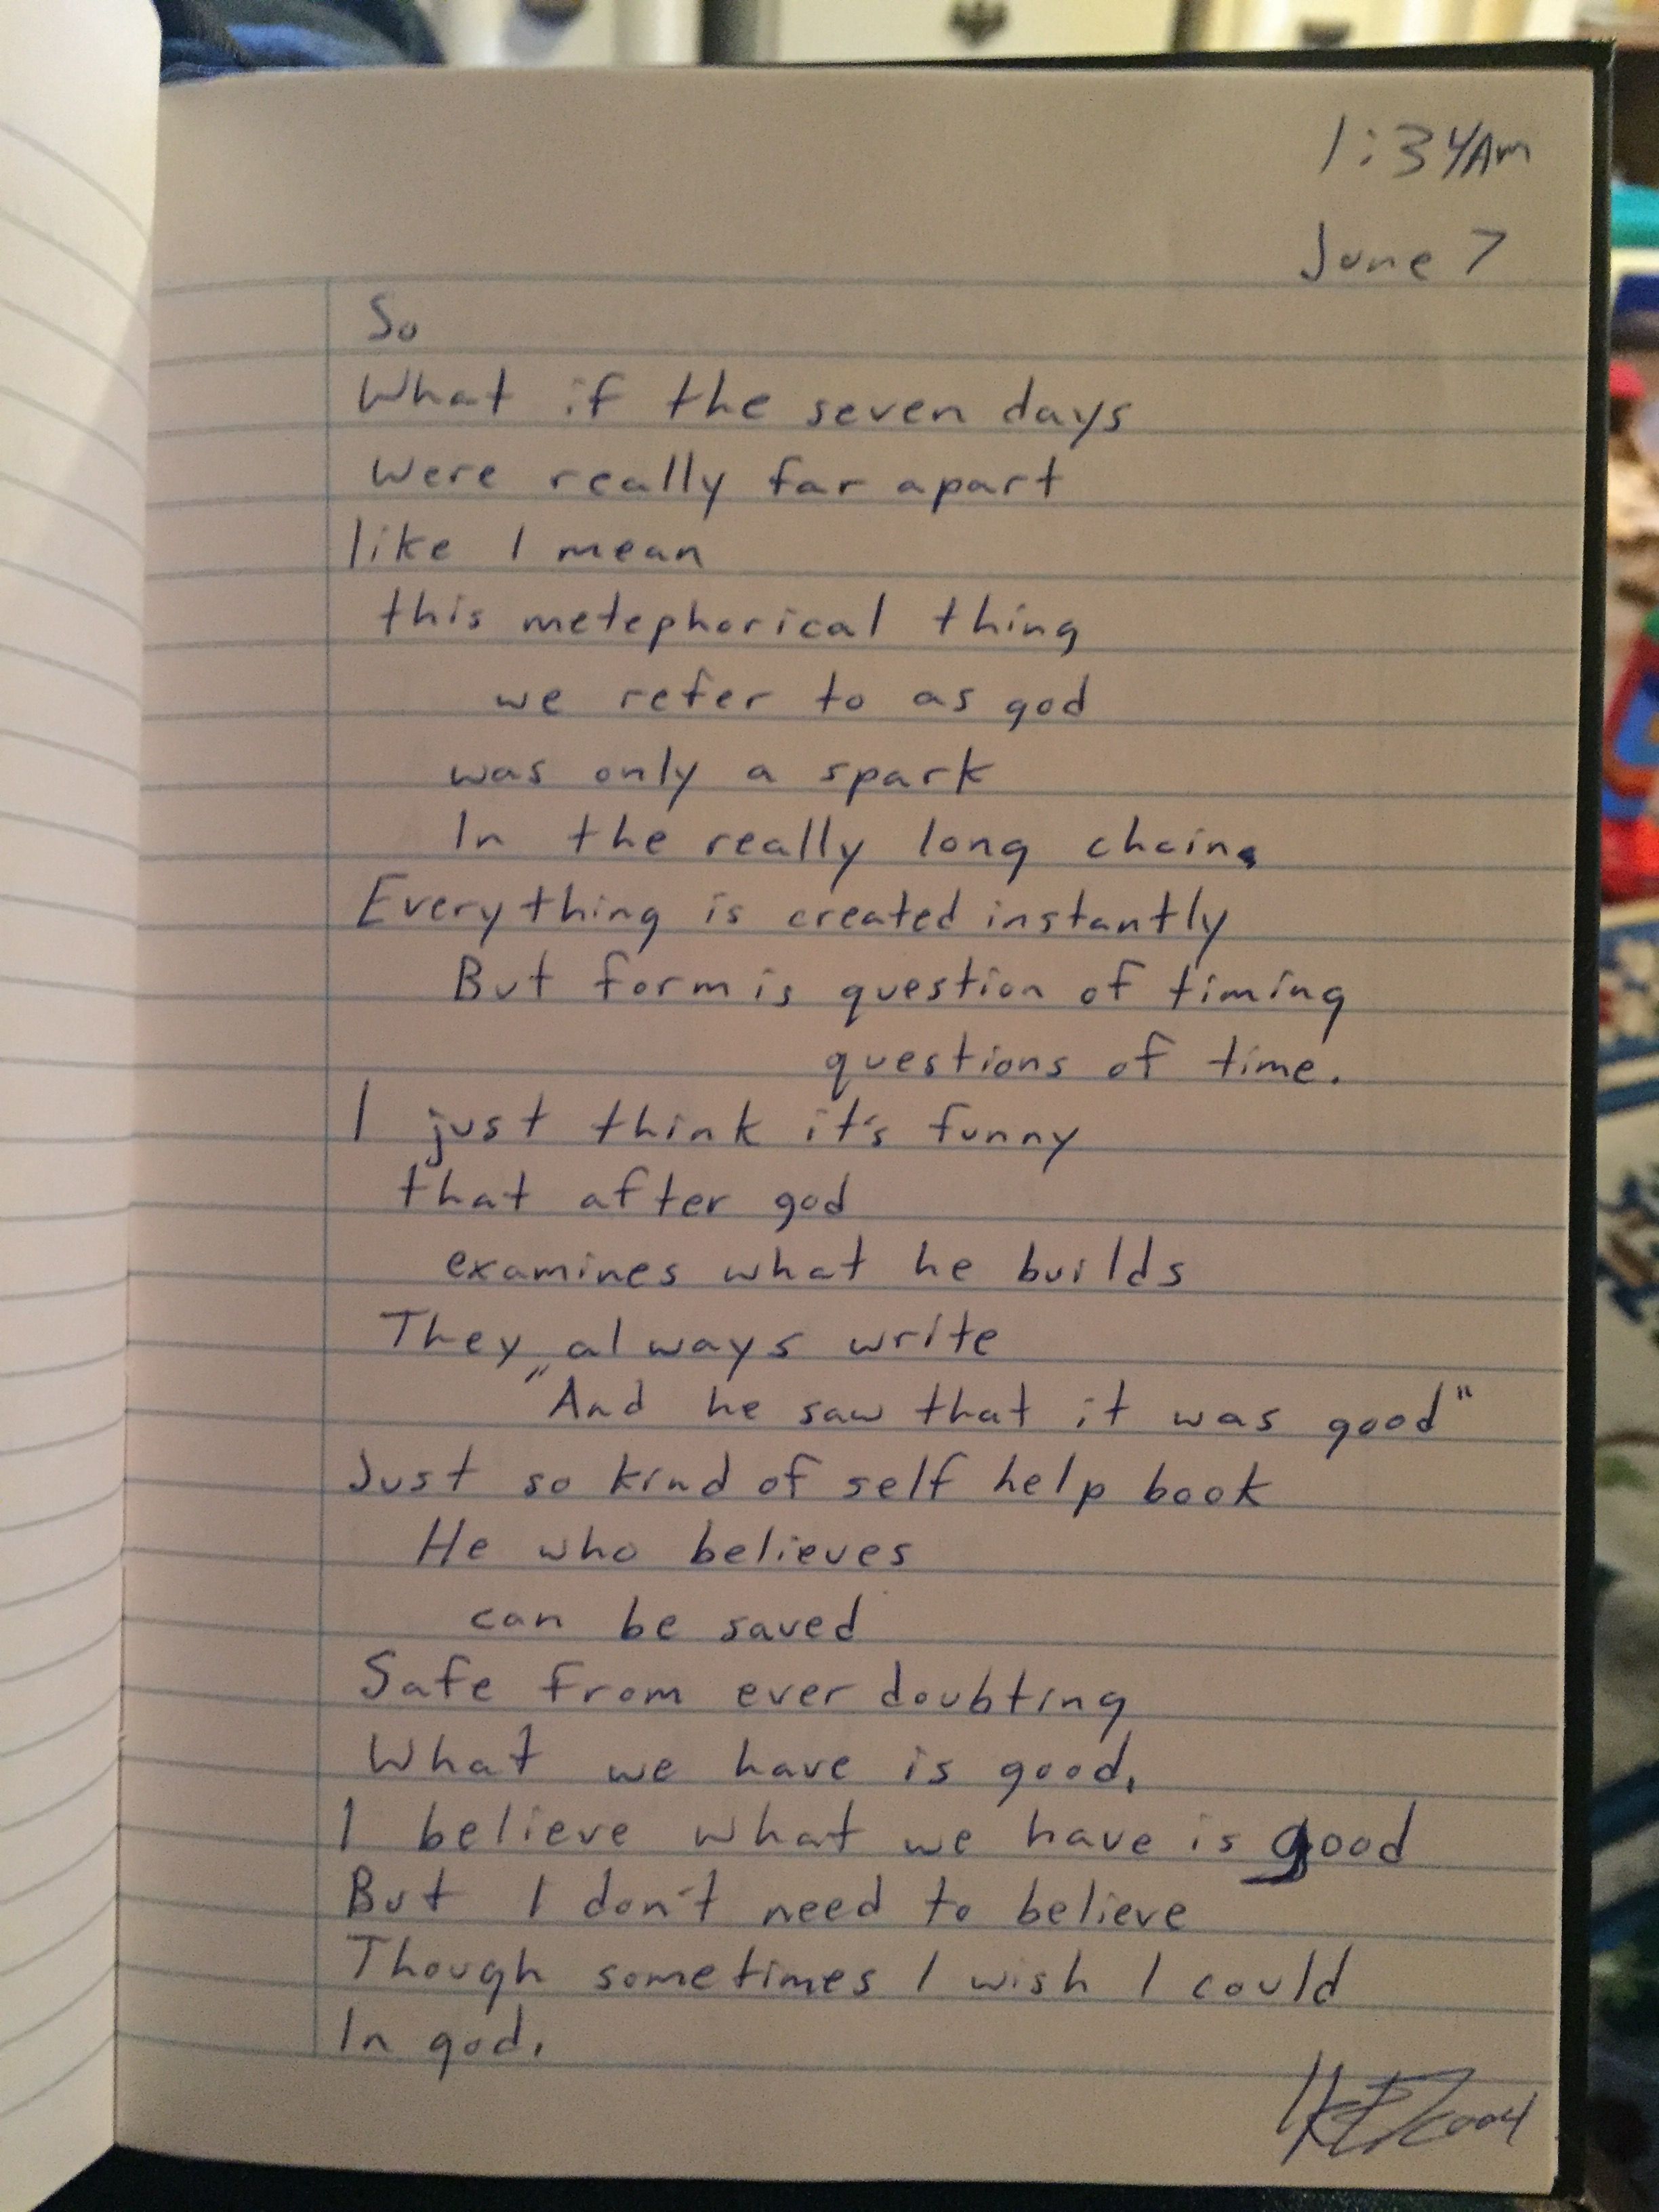 1:34Am
June 7
So
What if the seven days
were really far apart
like I mean
this metephorical thing
we refer to as god
was only a spark
In the really long chain.
Everything is created instantly
But form is question of timing
questions of time.
I just think it's funny
that after god
examines what he builds
They always write
"And he saw that it was good"
Just so kind of self help book
He who believes
can be saved
Safe from ever doubting
What we have is good.
I believe what we have is good
But I don't need to believe
Though sometimes I wish I could
In god.